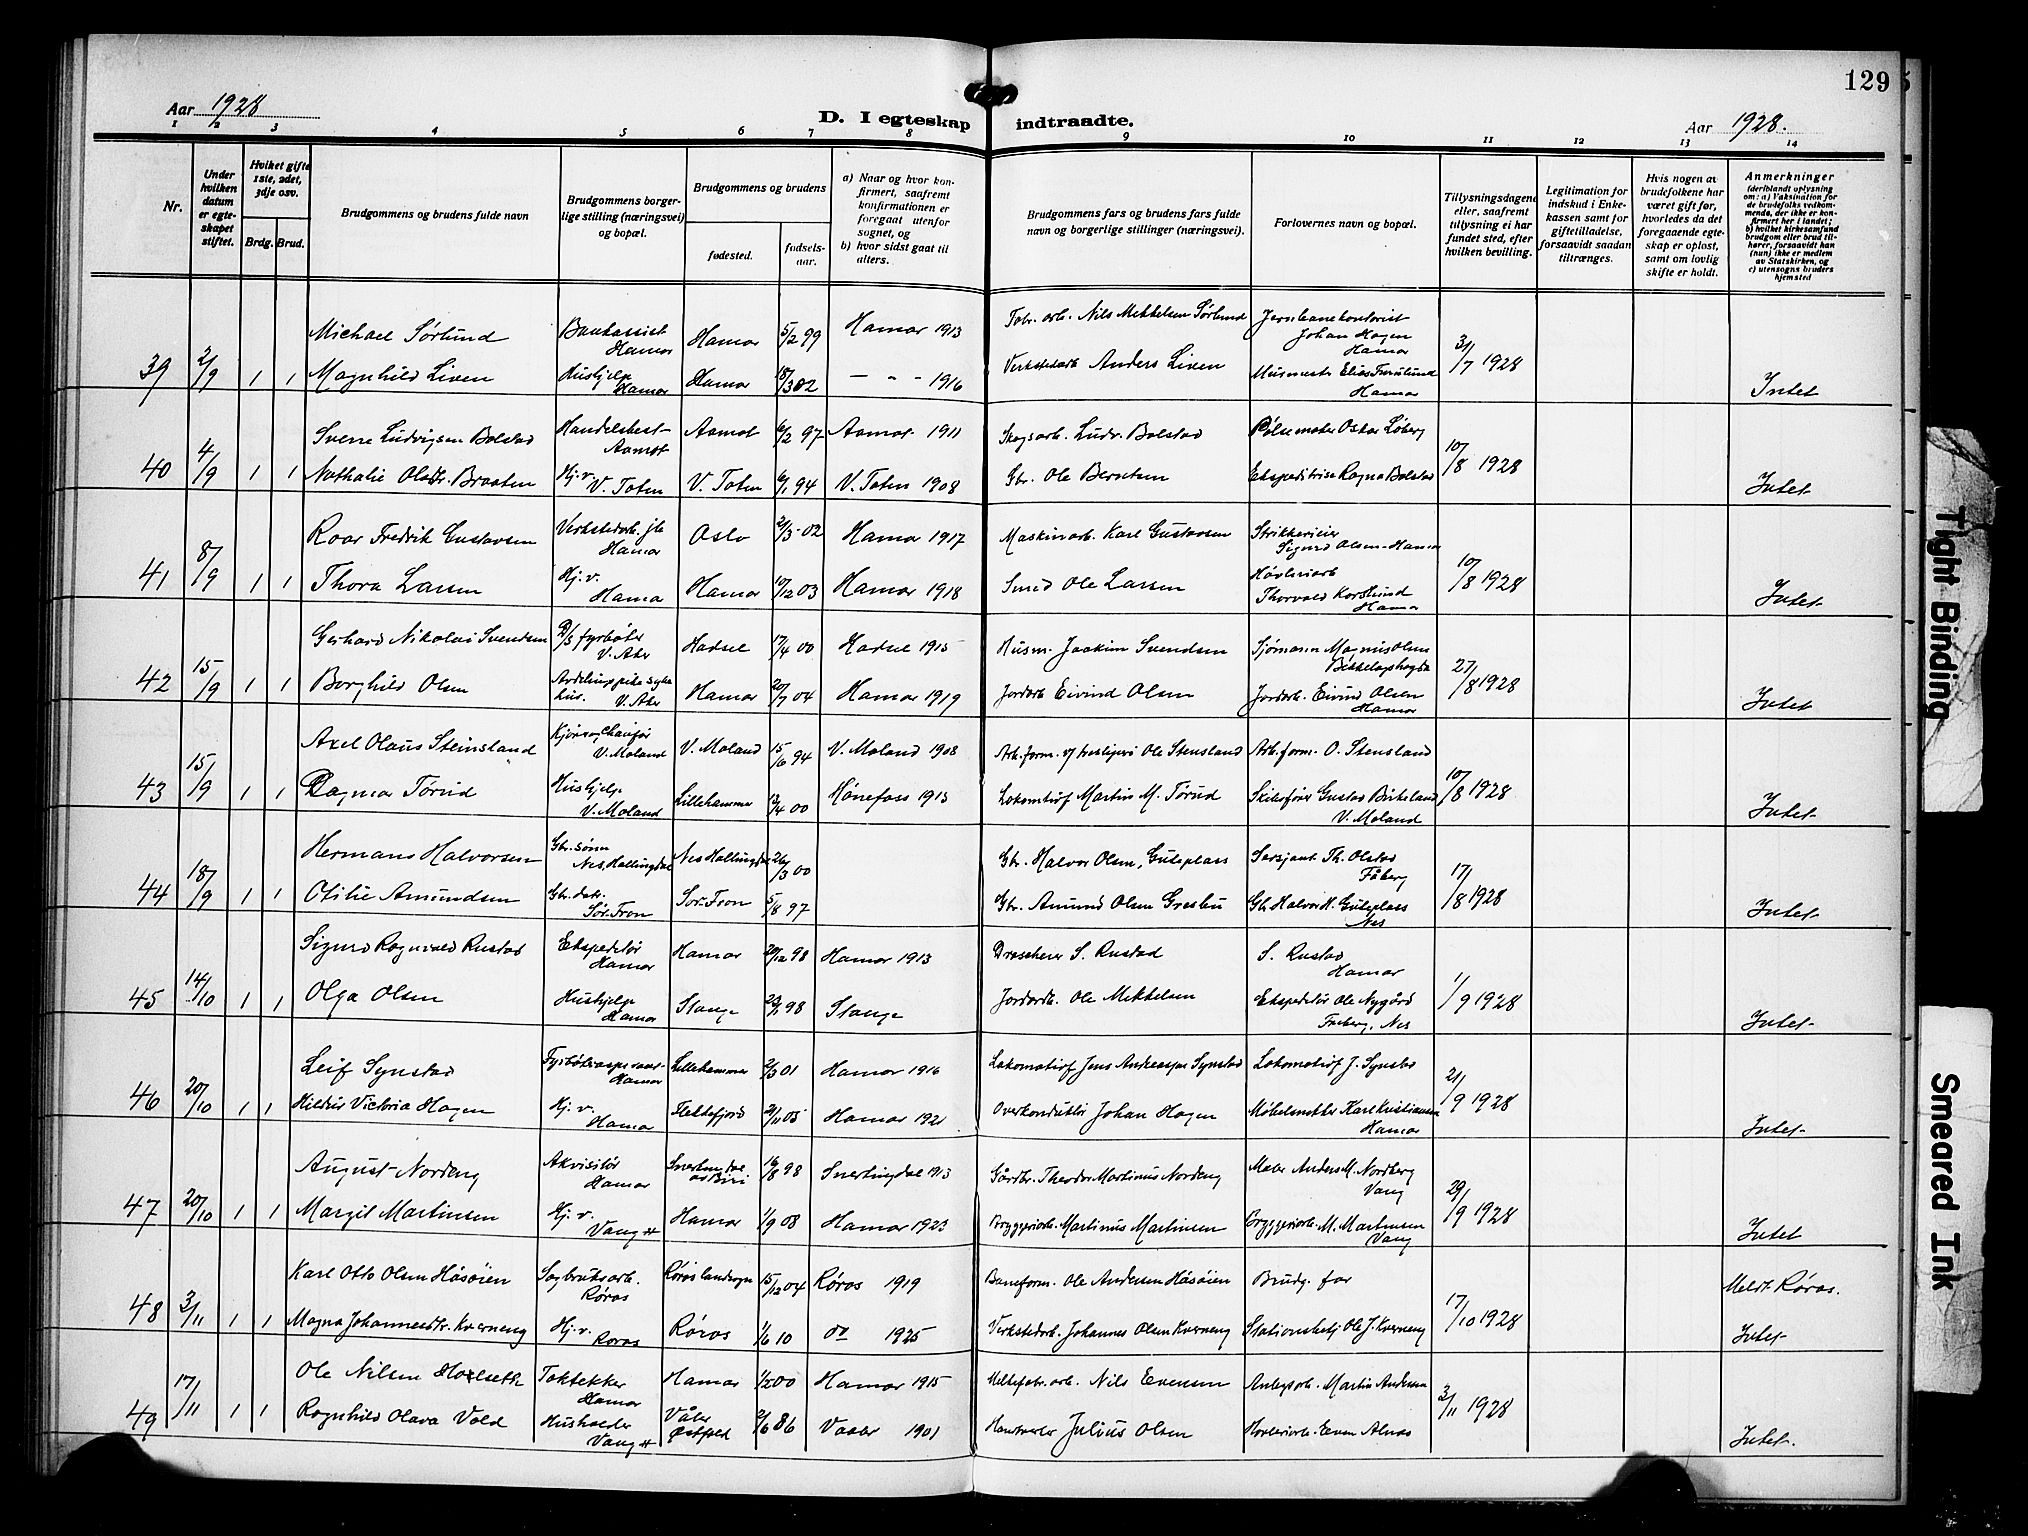 129
Aar 1928
D. I egteskap indtraadte.
Aar 1928.
1 2 3 4 5 6 7 8 9 10 11 12 13 14
Nr.
Under hvilken datum er egteskapet stiftet.
Hvilket gifte 1ste, 2det, 3dje osv.
Brdg. Brud.
Brudgommens og brudens fulde navn
Brudgommens borgerlige stilling (næringsvei) og bopæl.
Brudgommens og brudens
fødested.
fødselsaar.
a) Naar og hvor konfirmert, saafremt konfirmationen er foregaat utenfor sognet, og
b) hvor sidst gaat til alters.
Brudgommens fars og brudens fars fulde navn og borgerlige stillinger (næringsvei).
Forlovernes navn og bopæl.
Tillysningsdagene eller, saafremt tillysning ei har fundet sted, efter hvilken bevilling.
Legitimation for indskud i Enkekassen samt for giftetilladelse, forsaavidt saadan tiltrænges.
Hvis nogen av brudefolkene har været gift før, hvorledes da det foregaaende egteskap er opløst, samt om lovlig skifte er holdt.
Anmerkninger
(deriblandt oplysning om: a) Vaksination for de brudefolks vedkommende, der ikke er konfirmert her i landet; b) hvilket kirkesamfund brudgom eller brud tilhører, forsaavidt han (hun) ikke er medlem av Statskirken, og c) utensogns bruders hjemsted
Michael Sørlund Bankassist Hamar Hamar 5/2 99 Hamar 1913 Fabr. arb. Nils Mikkelsen Sørlund Jernbanekontorist Johan Hagen Hamar
39 2/9 1 1 Magnhild Liven Hushjelp Hamar Hamar 18/3 02 — " - 1916 Verkstedarb Anders Liven Murmester Elias Furulund Hamar 31/7 1928 Intet
Sverre Ludvigsen Bolstad Handelsbest. Aamot Aamot 6/2 97 Aamot 1911 Skogsarb. Ludv. Bolstad Pølsemaker Oskar Løberg
40 4/9 1 1 Nathalie Olsdtr. Braaten Hj. v. V. Toten V. Toten 6/1 94 V. Toten 1908 Gbr. Ole Berntsen Ekspeditrise Ragna Bolstad 10/8 1928 Intet
Roar Fredrik Gustavsen Verkstedarb. Hamar Oslo 2/3-02 Hamar 1917 Maskinarb. Karl Gustavsen Strikkerieier Sigurd Olsen-Hamar
41 8/9 1 1 Thora Larsen Hj. v. Hamar Hamar 10/12 03 Hamar 1918 Smed Ole Larsen Høvleriarb Thorvald Korslund Hamar 10/8 1928 Intet
Gerhard Nikolai Svendsen D/S fyrbøter V. Aker Hadsel 17/4 00 Hadsel 1915 Husm. Joakim Svendsen Sjømann Magnus Olsen Bekkelagshøgda
42 15/9 1 1 Borghild Olsen Avdelingspike V. Aker Hamar 20/7 04 Hamar 1919 Jordarb Eivind Olsen Jordarb. Eivind Olsen Hamar 27/8 1928 Intet
Axel Olaus Steinsland V. Moland V. Moland 15/6 94 V. Moland 1908 Arb.form. Ole Stensland Arb. form. O. Stensland
43 15/9 1 1 Dagmar Tørud Hushjelp V. Moland Lillehammer 12/4 00 Hønefoss 1915 Lokomotivf Martin M. Tørud Gustav Birkeland V. Moland 10/8 1928 Intet
Hermann Halvorsen Gbr. sønn Nes, Hallingdal Nes Hallingdal 26/3 00 Gbr. Halvor Olsen, Guleplass Sersjant Th. Olstad Fåberg
44 18/9 1 1 Otilie Amundsen Gbr. datr. Sør-Fron Sør-Fron 5/8 97 Gbr. Amund Olsen Gb. Halvor H. Guleplass Nes 17/8 1928 Intet
Sigurd Ragnvald Rustad Ekspeditør Hamar Hamar 20/12 98 Hamar 1913 S. Rustad S. Rustad Hamar
45 14/10 1 1 Olga Olsen Hushjelp Hamar Stange 98 Stange Jordarb. Ole Mikkelsen Ekspeditør Ole Nygård Nes 1/9 1928 Intet
Leif Synstad Hamar Lillehammer 2/3 01 Hamar 1916 Lokomotivf Jens Andreassen Synstad Lokomotivf J. Synstad
46 20/10 1 1 Hildur Victoria Hagen Hj. v. Hamar Flekkefjord 2/11 05 Hamar 1921 Overkonduktør Johan Hagen Møbelsnekker Karl Kristiansen Hamar 21/9 1928 Intet
August Nordeng Akvisitør Hamar Snertingdal Biri 16/8 98 Snertingdal 1913 Gårdbr. Theodor Martinius Nordeng Maler Anders M. Nordberg Vang
47 20/10 1 1 Margit Martinsen Hj. v. Vang H Hamar 1/9 08 Hamar 1923 Bryggeriarb. Martinus Martinsen Bryggeriarb. M. Martinsen Vang 29/9 1928 Intet
Karl Otto Olsen Håsøien Sagbruksarb. Røros Røros landsogn 15/12 04 Røros 1919 Baneform. Ole Andersen Håsøien Brudg. far Meldt Røros.
48 3/11 1 1 Magna Johannesdtr. Kverneng Hj. v. Røros Røros 1/6 10 do 1925 Verkstedarb. Johannes Olsen Kverneng Stationsbetj Ole J. Kverneng 17/10 1928 Intet
Ole Nilsen Taktekker Hamar Hamar 1/2 00 Hamar 1915 Nils Evensen Anlegsarb. Martin Andersen
49 17/11 1 1 Ragnhild Olava Vold Husholder Vang H Våler Østfold 2/6 86 Vaaler 1901 Julius Olsen Høvleriarb. Even Alnæs 3/11 1928 Intet.
Tight Binding
Smeared Ink